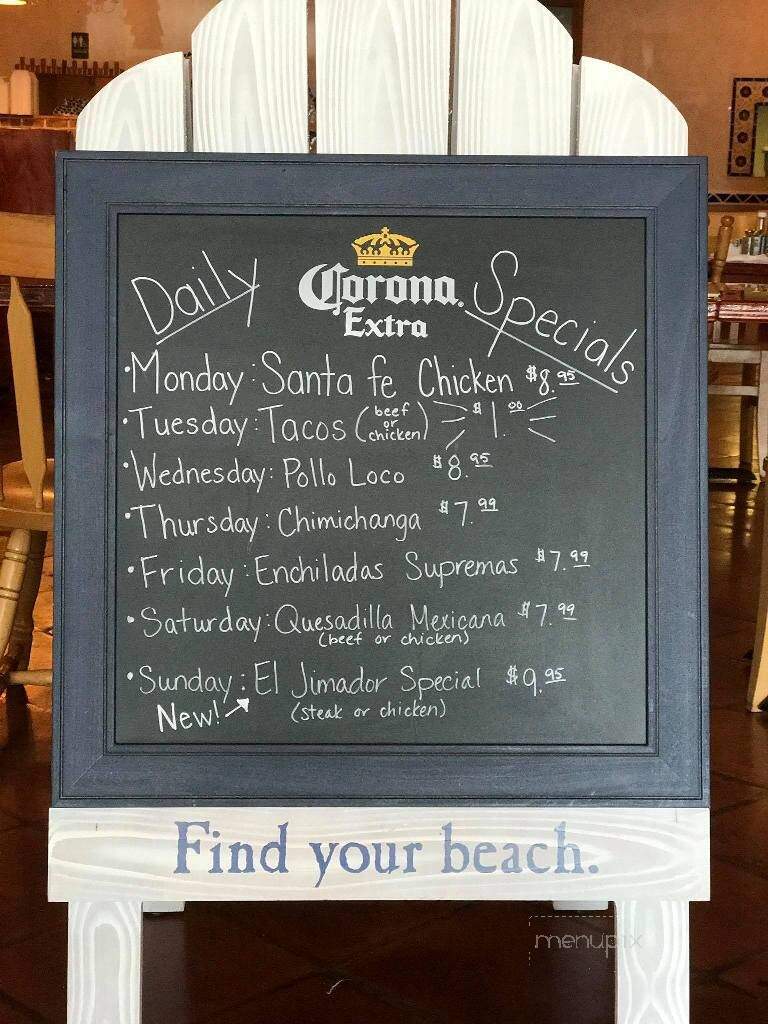 Daily Specials
Corona.
Extra
•Monday: Santa fe Chicken $8.95
•Tuesday: Tacos (beef or chicken) $1.00
•Wednesday: Pollo Loco $8.95
•Thursday: Chimichanga $7.99
•Friday: Enchiladas Supremas $7.99
•Saturday: Quesadilla Mexicana $7.99
(beef or chicken)
•Sunday: El Jimador Special $9.95
New! (steak or chicken)
Find your beach.
menupix